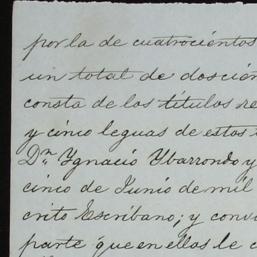 por la de cuatrocientos
un total de doscien
consta de los títulos re
y cinco leguas de estos
Dn. Ygnacio Ybarrondo y
cinco de Junio de mil
crito Escribano; y conv
parte que en ellas le c